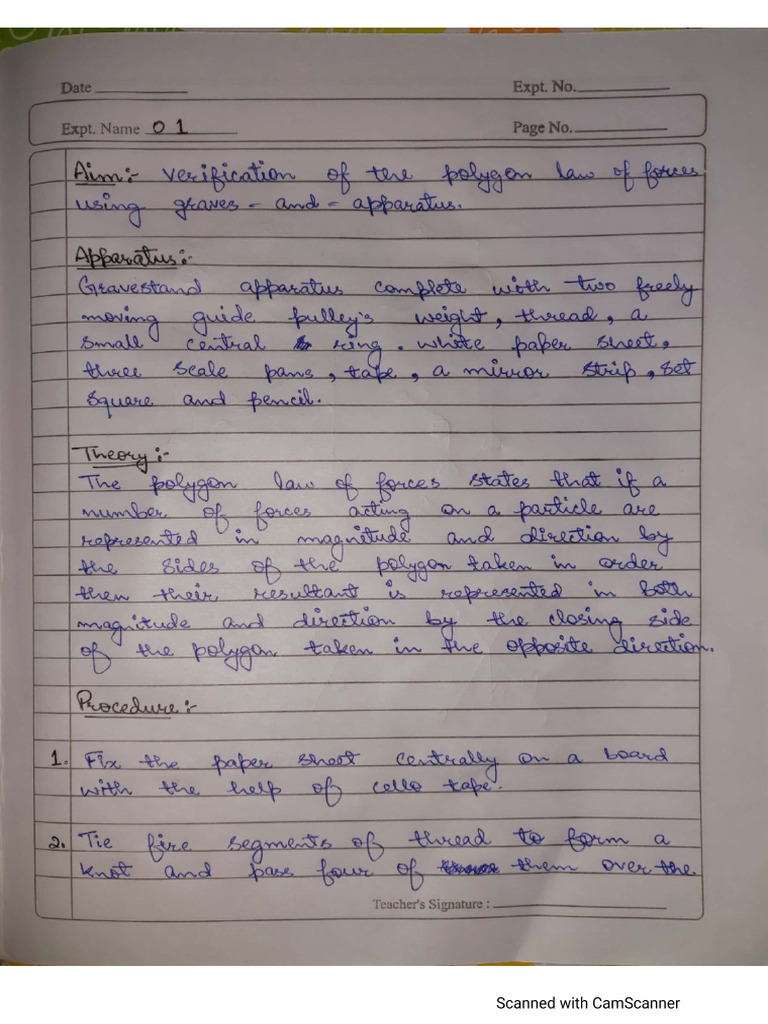 Date
Expt. No.
Expt. Name 01
Page No.
Aim:- Verification of the polygon law of forces
using graves - and - apparatus.
Apparatus:-
Gravestand apparatus complete with two freely
moving guide pulley's weight, thread, a
small central ring. white paper sheet,
three scale pans, tape, a mirror strip, set
square and pencil.
Theory:-
The polygon law of forces states that if a
number of forces acting on a particle are
represented in magnitude and direction by
the sides of the polygon taken in order
then their resultant is represented in both
magnitude and direction by the closing side
of the polygon taken in the opposite direction.
Procedure:-
1. Fix the paper sheet centrally on a board
with the help of cello tape.
2. Tie five segments of thread to form a
knot and pass four of them over the
Teacher's Signature :
Scanned with CamScanner